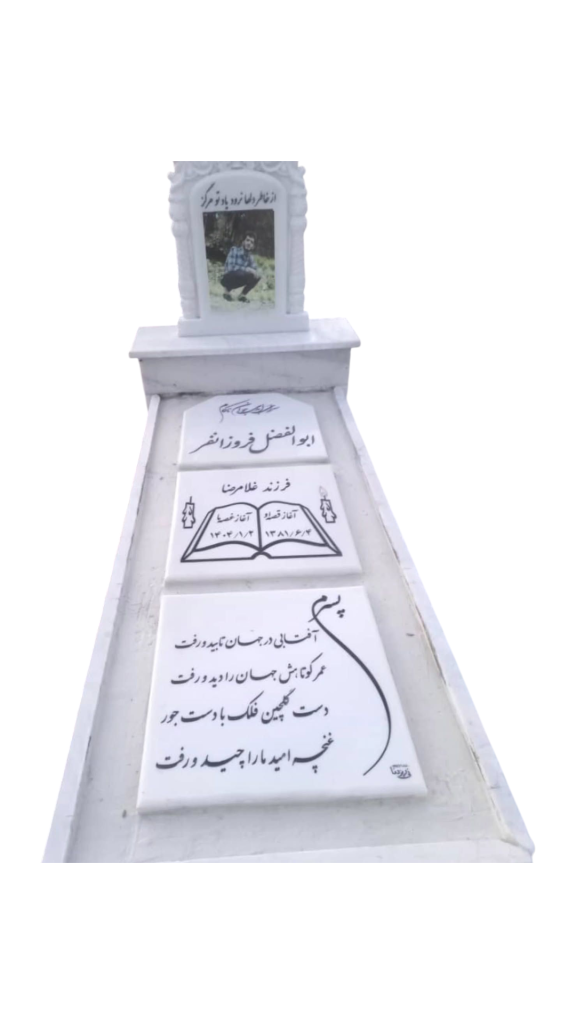 از خاطر دلها نرود یاد تو هرگز
ابوالفضل فروزانفر
فرزند غلامرضا
آغاز قصه‌ها
آغاز غصه‌ها
۱۳۸۱/۶/۴
۱۴۰۴/۱/۲
پسرم
آفتابی در جهان تابید و رفت
عمر کوتاهش جهان را دید و رفت
دست گلچین فلک با دست جور
غنچه امید ما را چید و رفت